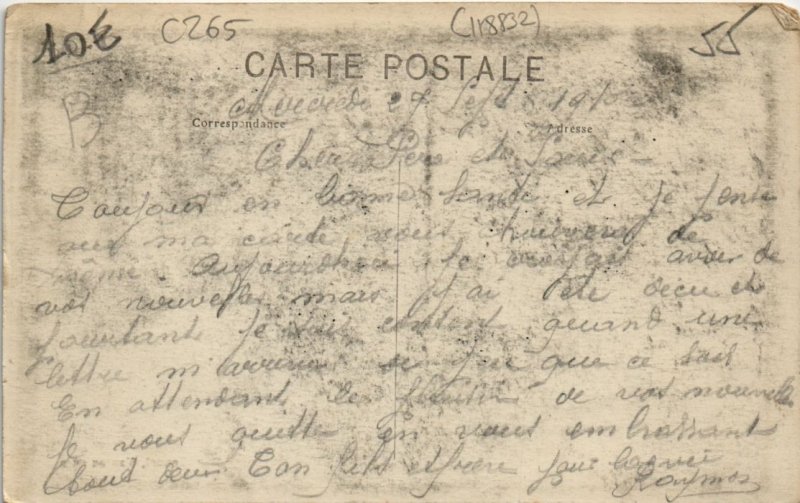 10E C265 (118832) 55
CARTE POSTALE
B
27 Sept 191
Correspondance Adresse
Chers Père et
Toujours en bonne santé et je pense
que ma carte vous trouvera de
même Aujourdhui je croyais avoir de
vos nouvelles mais j'ai été decu et
pourtant je suis content quand une
lettre m'arrive si peu que ce soit
En attendant le plaisir de vos nouvelles
Je vous quitte en vous embrassant
tous deux Ton fils et frère pour la vie
Raymond